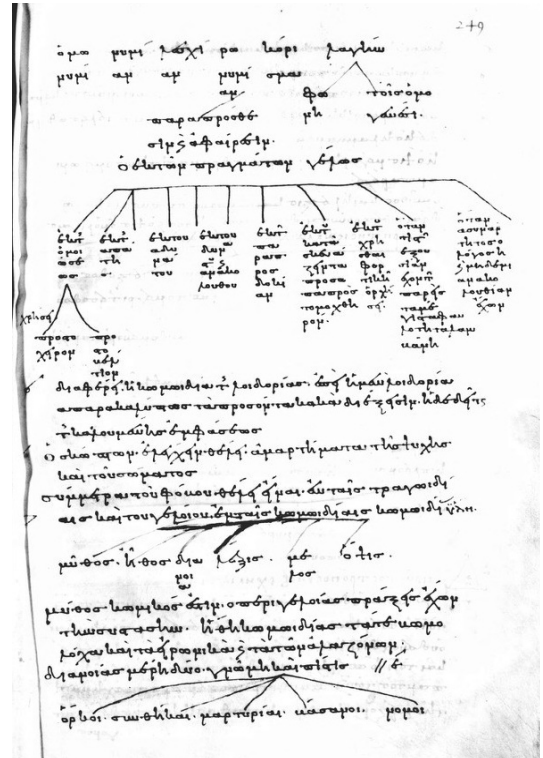 249
ὁμω νυμί λεσχί ρω κόρι λαγὴν
νυμί αν αν νυμί σμα
αν φω τοῖς ὁμο
παρα πρόσθε νῆ γενέσι.
σιν καὶ ἀφαίρεσιν.
Ὁ ἐκ τῶν πραγμάτων γέλως
ἐκ τ
ὁμοι
ώσε
ως
ἐκ τ
ἀπά
τη
ἐκ του
ἀδυ
νά
του
ἐκ του
δυνα
καὶ
ἀνακο
λουθου
ἐκ τ
πα
ρα π
ρος
δοκί
αν
ἐκ τοῦ
κατα
σκευά
ζειν τα
προσω
πα προς
το μοχθη
ρον.
ἐκ τ
χρῆ
σθαι
φορ
τικῆ
ὀρχή
σει
ὅταν
τις
ἐξου
σίαν
ἐχοντ
παρεὶς
τα με
γιστα φαυ
λοτητα λαμ
βάνη
ὅταν
ἀσυναρ
τητος ὁ
λόγος ἦ
καὶ μηδεμι
αν ἀκο
λουθίαν
ἔχων
χρῆσει
προς το
χεῖρον
προς
το
βελ
τιον
διαφέρει ἡ κωμωδία τῆς λοιδορίας. ἐπεὶ ἡ μὲν λοιδορία
ἀπαρακαλύπτως τὰ προσόντα κακὰ διέξεισιν. ἡ δὲ δεῖται
τῆς καλουμένης ἐμφάσεως
Ὁ σκώπτων. ἐλέγχειν θέλει ἁμαρτήματα τῆς ψυχῆς
καὶ τοῦ σώματος
συμμετρία τοῦ φόβου θέλει εἶναι ἐν ταῖς τραγωδί
αις καὶ τοῦ γελοίου ἐν ταῖς κωμωδίαις κωμωδί ὕλη.
μῦθος. ἦθος διά λέξις. μέ ὄψις.
νοι λος
α
μῦθος κωμικός ἐστιν. ὁ περὶ γελοίας πράξεις ἔχων
τὴν σύστασιν. ἤθη κωμωδίας τά τε βωμο
λόχα καὶ τὰ εἰρωνικὰ καὶ τὰ τῶν ἀλαζόνων.
διανοίας μέρη δύο. γνώμη καὶ πίστις // ε
ὅρκοι. συνθῆκαι. μαρτυρίαι. βάσανοι. νόμοι